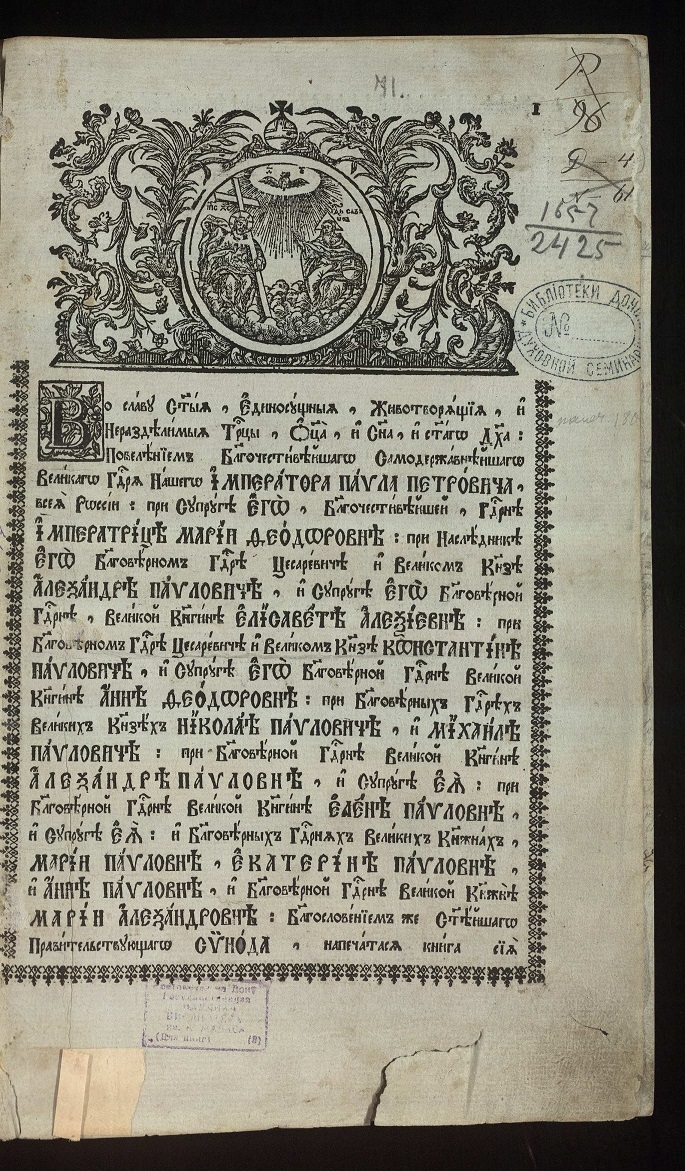 71.
1
Р.
96
Д - 4
61
1657
2425
БИБЛІОТЕКИ ДОНС
№
ДУХОВНОЙ СЕМИНАР
Во сла́вꙋ Ст҃ы́ѧ , Є҆диносꙋ́щныѧ , Животворѧ́щїѧ , и҆
Нераздѣли́мыѧ Трⷪ҇цы , Ѻ҆ц҃а̀ , и҆ Сн҃а , и҆ ст҃а́гѡ Дх҃а :
Повелѣ́нїемъ Бл҃гочести́вѣйшагѡ Самодержа́внѣйшагѡ
Вели́кагѡ Гдⷭ҇рѧ На́шегѡ І҆МПЕРА́ТОРА ПА́ѴЛА ПЕТРО́ВИЧА ,
всеѧ̀ Рѡссі́и : при Сꙋпрꙋ́гѣ Є҆ГѠ̀ , Бл҃гочести́вѣйшей , Гдⷭ҇рнѣ
І҆МПЕРАТРИ́ЦѢ МАРІ́И ѲЕО́ДѠРОВНѢ : при Наслѣ́дникѣ
Є҆ГѠ̀ Бл҃говѣ́рномъ Гдⷭ҇рѣ Цесаре́вичѣ и҆ Вели́комъ Кн҃зѣ
А҆ЛЕѮА́НДРѢ ПА́ѴЛОВИЧѢ , и҆ Сꙋпрꙋ́гѣ Є҆ГѠ̀ Бл҃говѣ́рной
Гдⷭ҇рнѣ , Вели́кой Кн҃ги́нѣ Є҆ЛІСАВЕ́ТѢ А҆ЛЕѮІ́ЕВНѢ : при
Бл҃говѣ́рномъ Гдⷭ҇рѣ Цесаре́вичѣ и҆ Вели́комъ Кн҃зѣ КѠНСТАНТІ́НѢ
ПА́ѴЛОВИЧѢ , и҆ Сꙋпрꙋ́гѣ Є҆ГѠ̀ Бл҃говѣ́рной Гдⷭ҇рнѣ Вели́кой
Кн҃ги́нѣ А҆́ННѢ ѲЕО́ДѠРОВНѢ : при Бл҃говѣ́рныхъ Гдⷭ҇рѣхъ
Вели́кихъ Кн҃зѣ́хъ НІКОЛА́Ѣ ПА́ѴЛОВИЧѢ , и҆ МІХАИ́ЛѢ
ПА́ѴЛОВИЧѢ : при Бл҃говѣ́рной Гдⷭ҇рнѣ Вели́кой Кн҃ги́нѣ
А҆ЛЕѮА́НДРѢ ПА́ѴЛОВНѢ , и҆ Сꙋпрꙋ́гѣ Є҆Ѧ̀ : при
Бл҃говѣ́рной Гдⷭ҇рнѣ Вели́кой Кн҃ги́нѣ Є҆ЛЕ́НѢ ПА́ѴЛОВНѢ ,
и҆ Сꙋпрꙋ́гѣ Є҆Ѧ̀ : и҆ Бл҃говѣ́рныхъ Гдⷭ҇рнѧхъ Вели́кихъ Кн҃жна́хъ ,
МАРІ́И ПА́ѴЛОВНѢ , Є҆КАТЕРІ́НѢ ПА́ѴЛОВНѢ ,
и҆ А҆́ННѢ ПА́ѴЛОВНѢ , и҆ Бл҃говѣ́рной Гдⷭ҇рнѣ Вели́кой Кн҃жнѣ̀
МАРІ́И А҆ЛЕѮА́НДРОВНѢ : Бл҃гослове́нїемъ же Ст҃ѣ́йшагѡ
Прави́тельствꙋющагѡ СѴНО́ДА , напеча́тасѧ кни́га сїѧ̀
Государственная